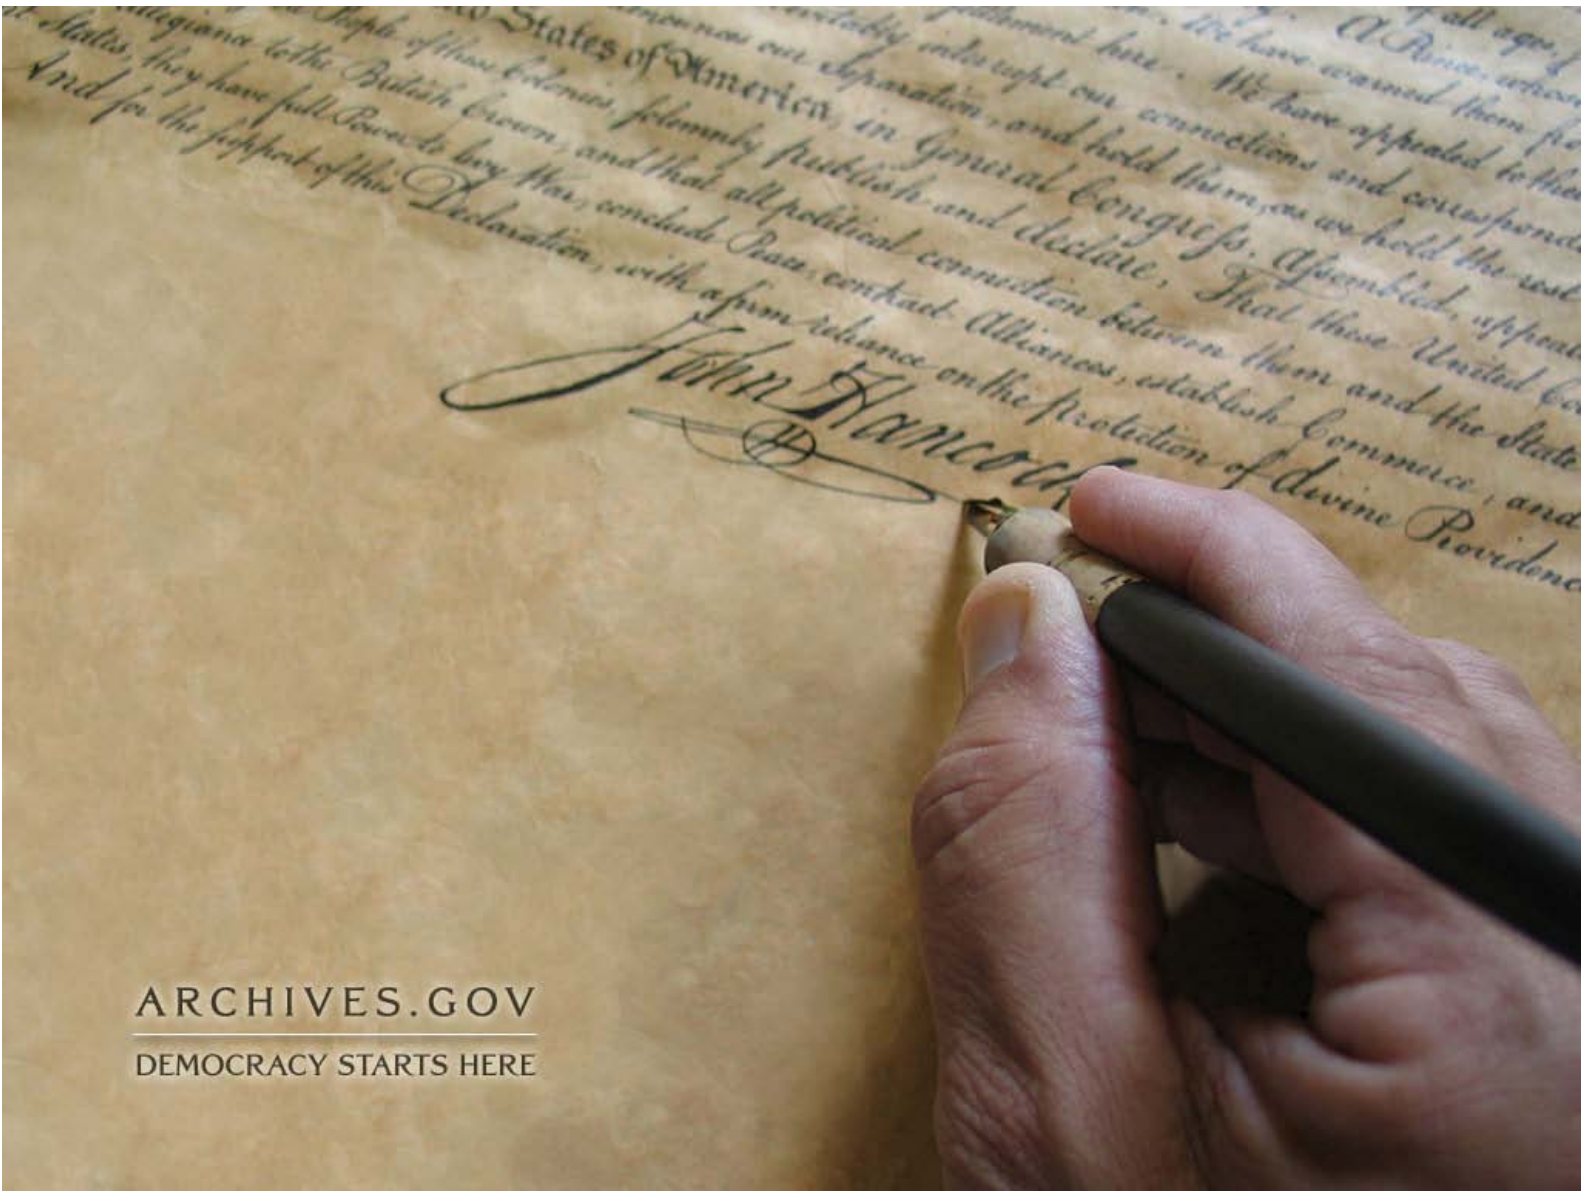 of all ages,
A Prince, whose
We have warned them fro
settlement here. We have appealed to their
inevitably interrupt our connections and correspond
our Separation, and hold them, as we hold the rest
States of America, in General Congress, Assembled, appeal
People of these Colonies, solemnly publish and declare, That these United Co
allegiance to the British Crown, and that all political connection between them and the State
States, they have full Power to levy War, conclude Peace, contract Alliances, establish Commerce, and
And for the support of this Declaration, with a firm reliance on the protection of divine Providenc
John Hancock
ARCHIVES.GOV
DEMOCRACY STARTS HERE